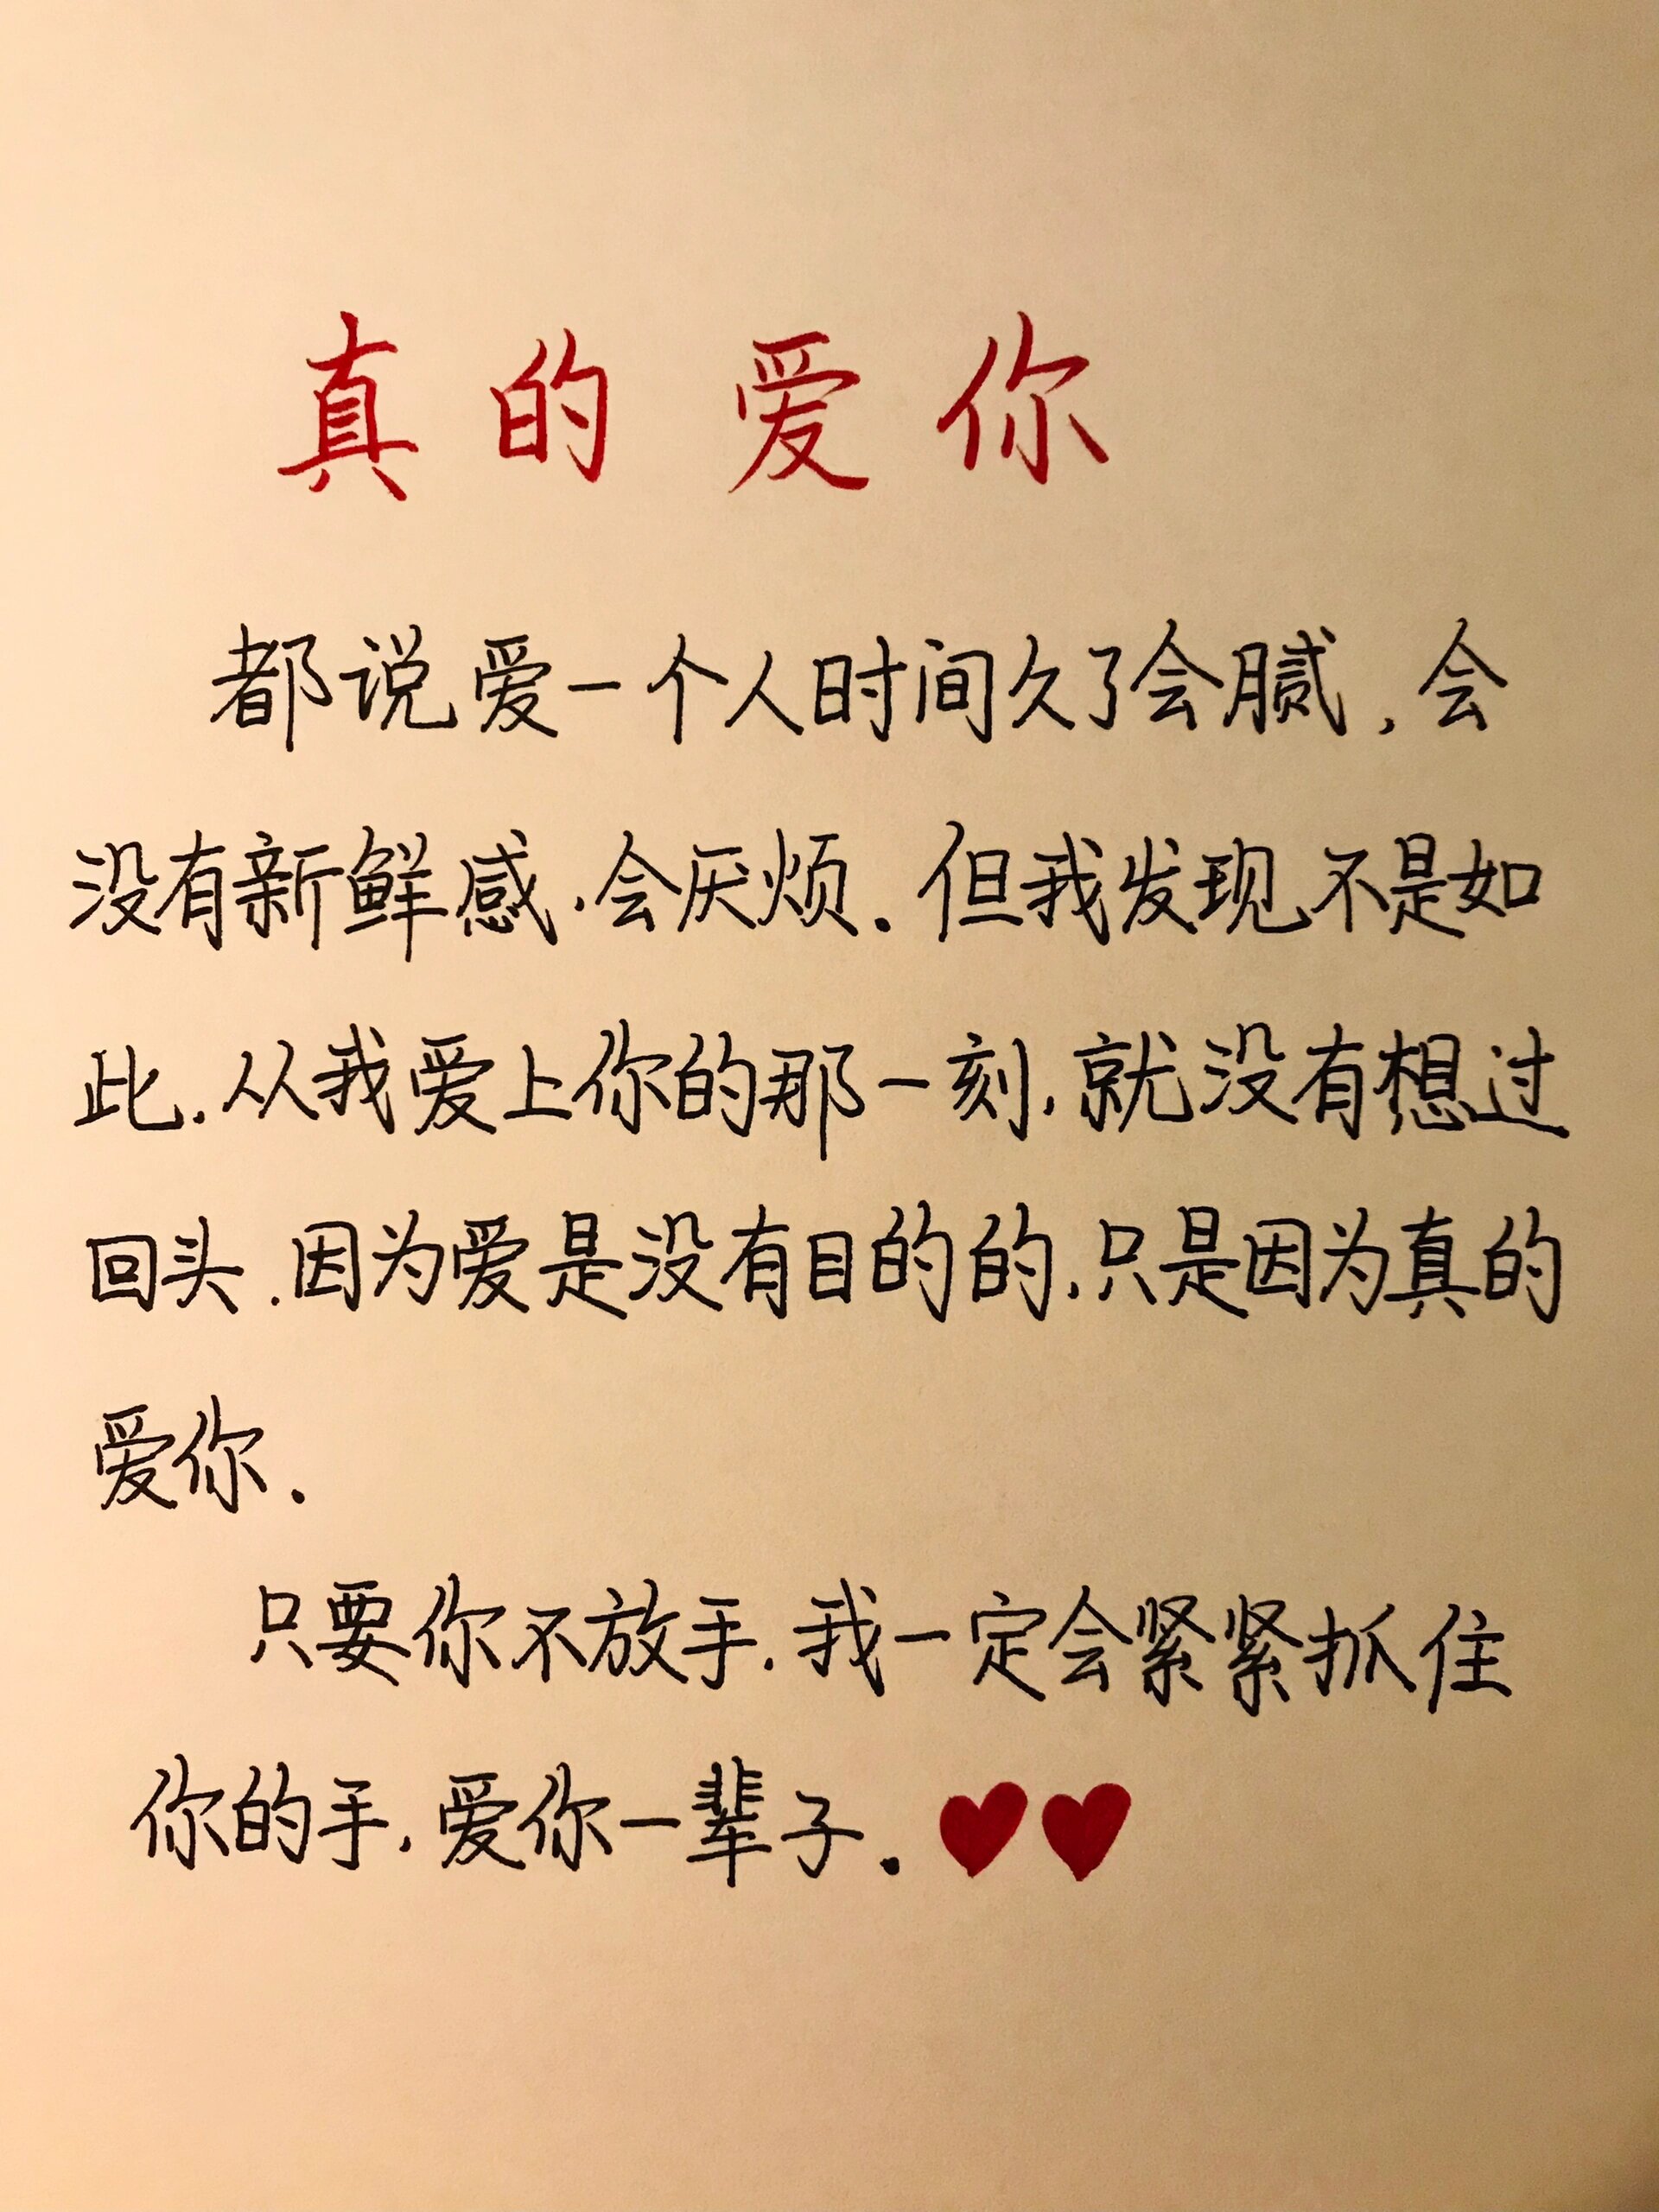 真的爱你
都说爱一个人时间久了会腻,会
没有新鲜感.会厌烦.但我发现不是如
此.从我爱上你的那一刻.就没有想过
回头.因为爱是没有目的的.只是因为真的
爱你.
只要你不放手.我一定会紧紧抓住
你的手.爱你一辈子.